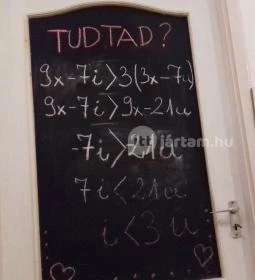 TUDTAD?
9x-7i>3(3x-7u)
9x-7i>9x-21u
-7i>21u
7i<21u
i<3u
jártam.hu